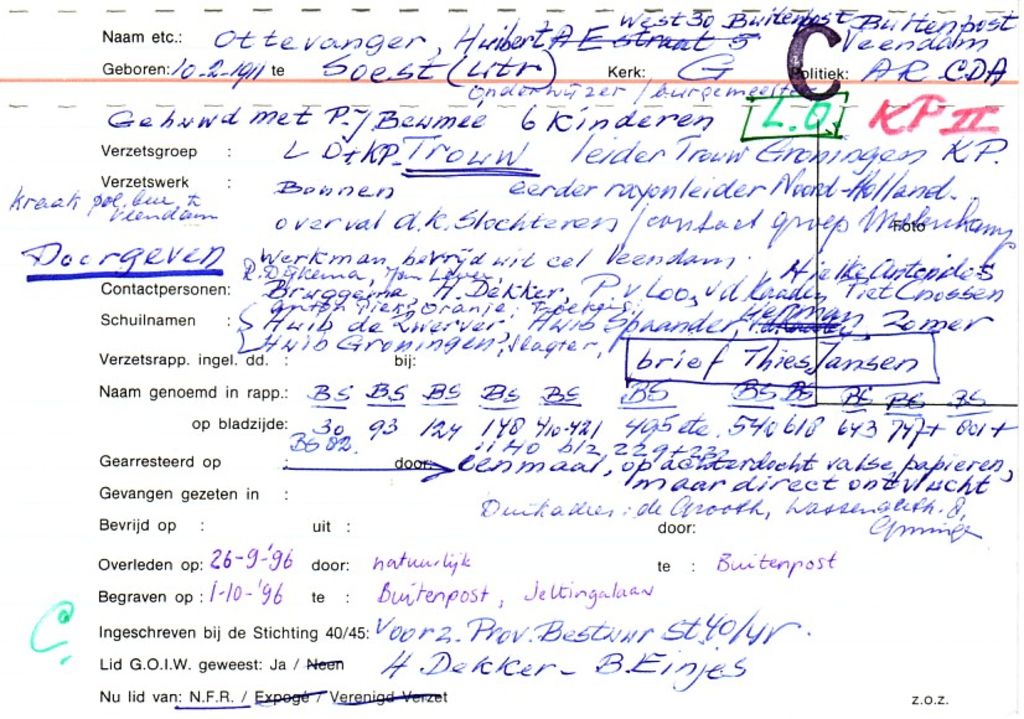 West 30 Buitenpost Buitenpost
Naam etc.: Ottevanger, Huibert A E straat 5 Veendam
C
Geboren: 10-2-1911 te Soest (Utr) Kerk: G Politiek: AR CDA
onderwijzer / burgemeester
Gehuwd met P.J Beumee 6 kinderen L.O. KP II
Verzetsgroep : L O + KP. Trouw leider Trouw Groningen KP.
Verzetswerk : Bonnen eerder rayonleider Noord-Holland.
kraak pol. bur. te Veendam
overval d.k. Slochteren / contact groep Molenkamp
Foto
Doorgeven Werkman, bevrijd uit cel Veendam.
R. Dijkema, Jan Lever, Hielke Antonides
Contactpersonen: Bruggema, H. Dekker, P. v. Loo, v.d. Kaaden Piet Cnossen
Anton Pier, Oranje,
Schuilnamen : Huib de Zwerver, Huib Spaander, Herman Zomer
Huib Groningen, Slagter,
Verzetsrapp. ingel. dd. : bij: brief Thies Jansen
Naam genoemd in rapp.: BS BS BS BS BS BS BS BS BS BS BS
op bladzijde: 30 93 124 148 410-421 495 etc. 540 618 643 747+ 801+
BS 82. 11 40 blz 229+232
Gearresteerd op : door: eenmaal, op achterdocht valse papieren,
maar direct ontvlucht
Gevangen gezeten in :
Duikadres: de Grooth, Wassenaerstr. 8,
Bevrijd op : uit : door: Groningen
Overleden op: 26-9-'96 door: natuurlijk te : Buitenpost
Begraven op : 1-10-'96 te : Buitenpost, Jeltingalaan
C
Ingeschreven bij de Stichting 40/45: Voorz. Prov. Bestuur St 40/45.
Lid G.O.I.W. geweest: Ja / Neen H. Dekker - B. Einjes
Nu lid van: N.F.R. / Expogé / Verenigd Verzet
z.o.z.